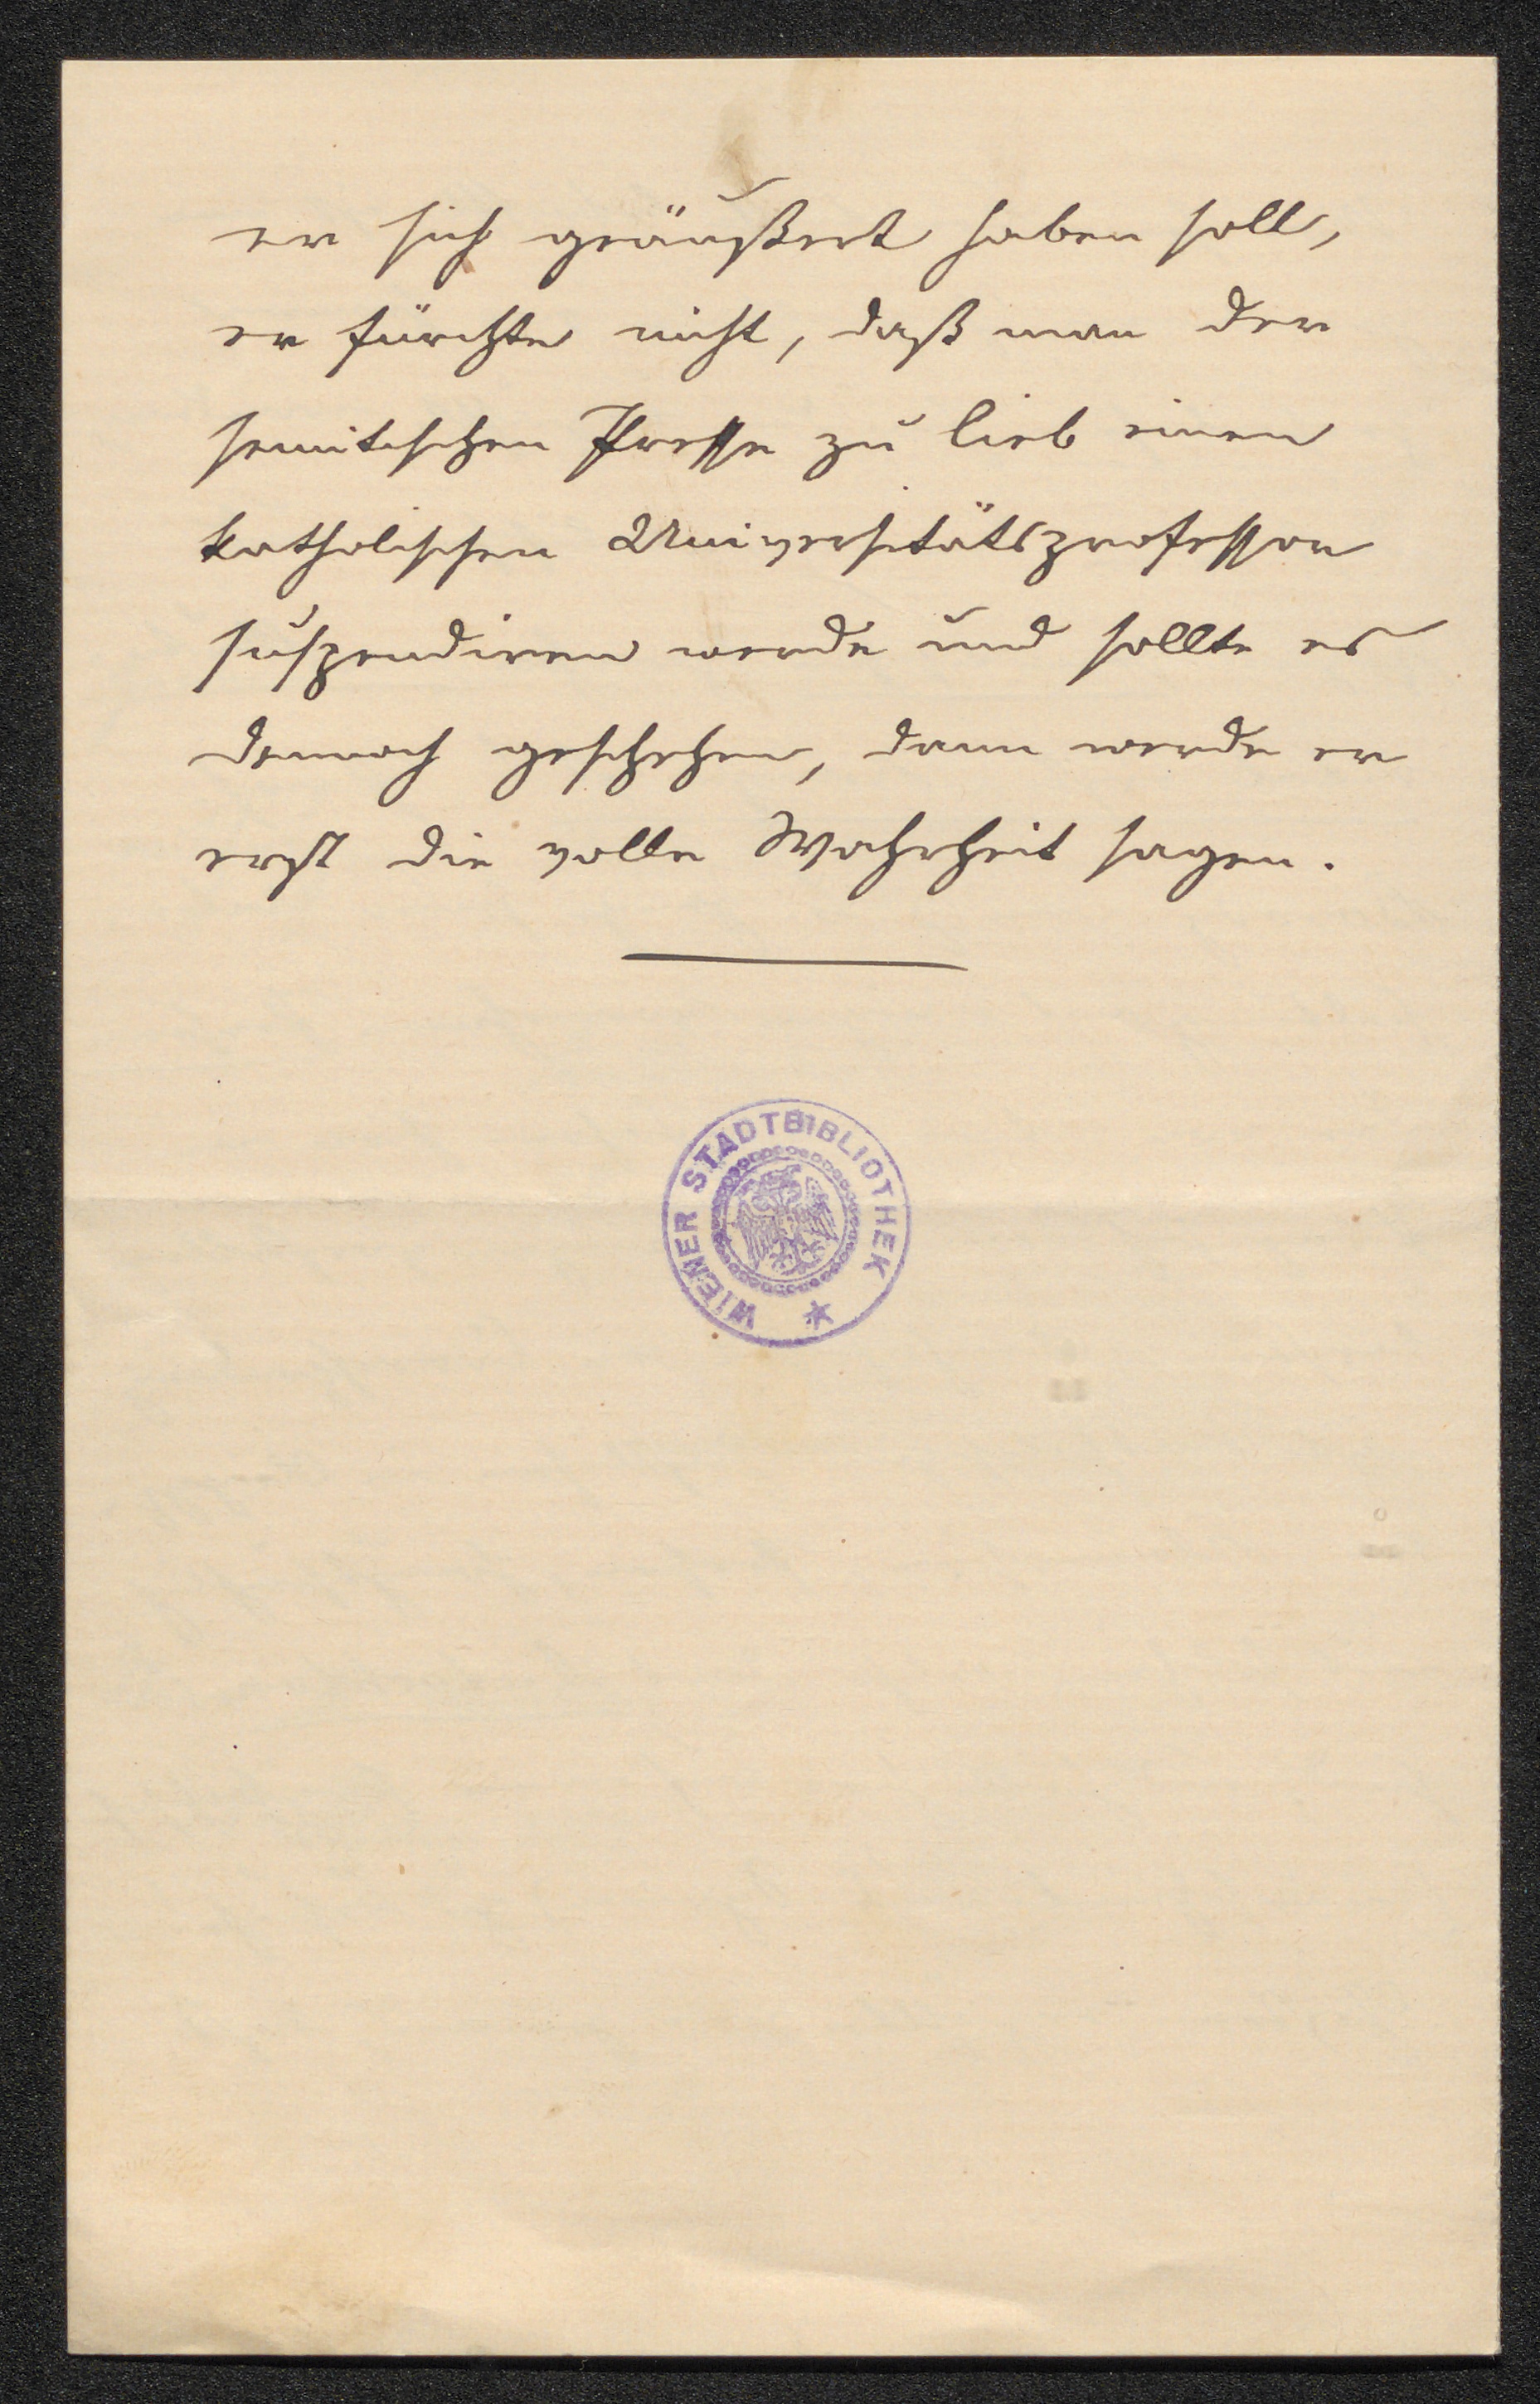 er sich geäußert haben soll,
er fürchte nicht, daß man der
semitischen Presse zu lieb einen
katholischen Universitätsprofessor
suspendiren werde und sollte es
dennoch geschehen, dann werde er
erst die volle Wahrheit sagen.
WIENER STADTBIBLIOTHEK *